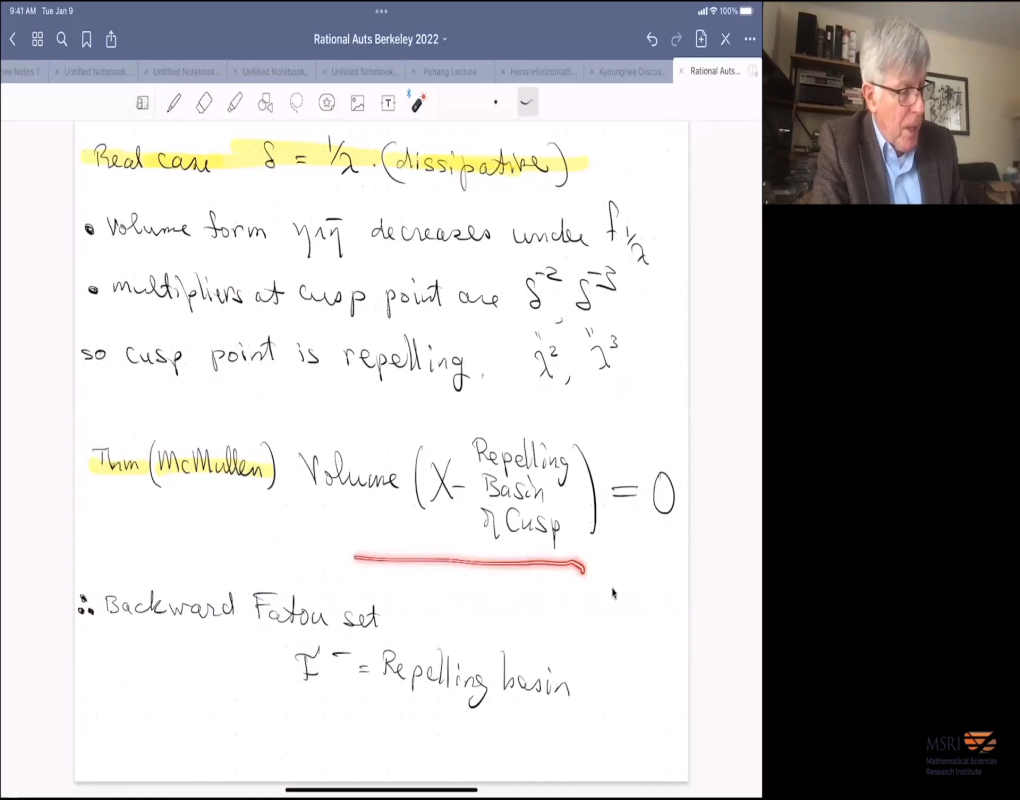 9:41 AM Tue Jan 9
100%
Rational Auts Berkeley 2022
Notes 1
Untitled Notebook...
Untitled Notebook...
Untitled Notebook...
Untitled Notebook...
Pohang Lecture
HenonHorizontalS...
Kyounghee Discus...
Rational Auts...
Real case δ = 1/λ. (dissipative)
• Volume form η∧η̄ decreases under f_{1/λ}
• multipliers at cusp point are δ^{-2}, δ^{-3}
so cusp point is repelling. λ^2, λ^3
Thm (McMullen) Volume (X - Repelling Basin of Cusp) = 0
∴ Backward Fatou set
F^- = Repelling basin
MSRI
Mathematical Sciences
Research Institute